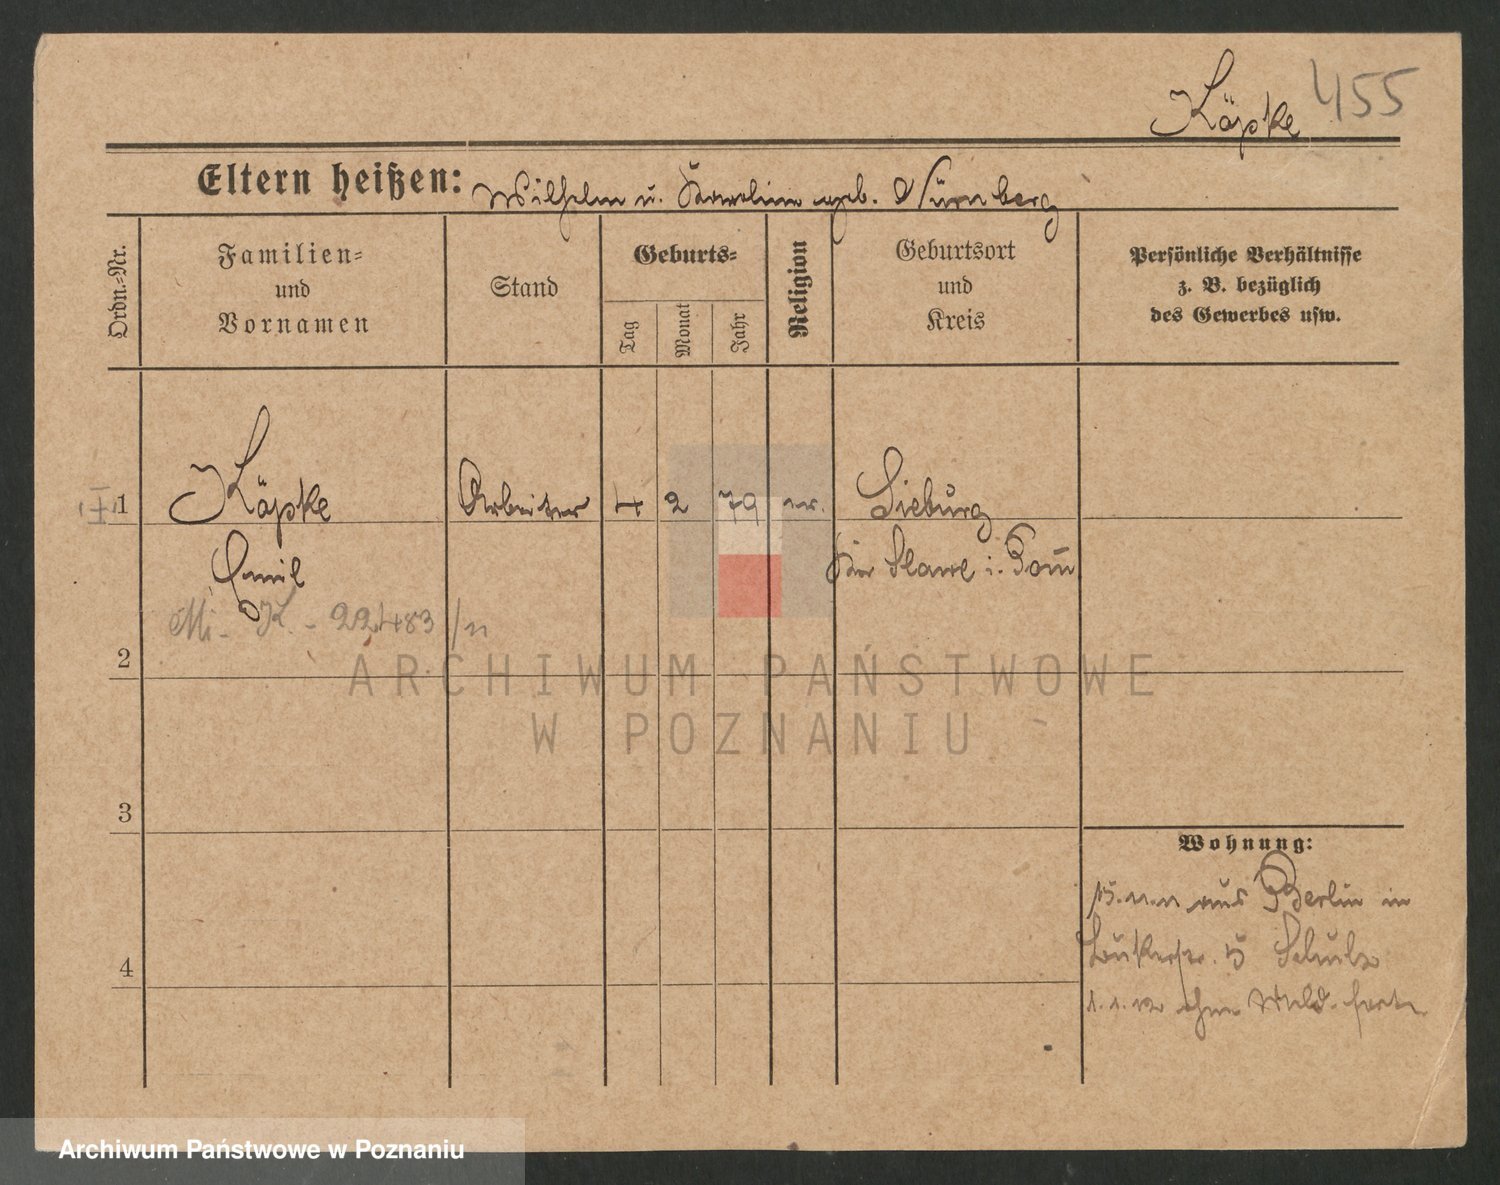 Köpke 455
Eltern heißen: Wilhelm u. Karoline geb. Nürnberg
Ordn.=Nr.
Familien=
und
Vornamen
Stand
Geburts=
Tag
Monat
Jahr
Religion
Geburtsort
und
Kreis
Persönliche Verhältnisse
z. B. bezüglich
des Gewerbes usw.
1 Köpke Arbeiter 4 2 79 ev. Sieburg
Emil Kr. Slawe i. Pom
Mi - K. - 22483/11
2
ARCHIWUM PAŃSTWOWE
W POZNANIU
3
Wohnung:
15.11.11 aus Berlin in
5 Schulz
4
1.1.12 ohne Meld. fort
Archiwum Państwowe w Poznaniu